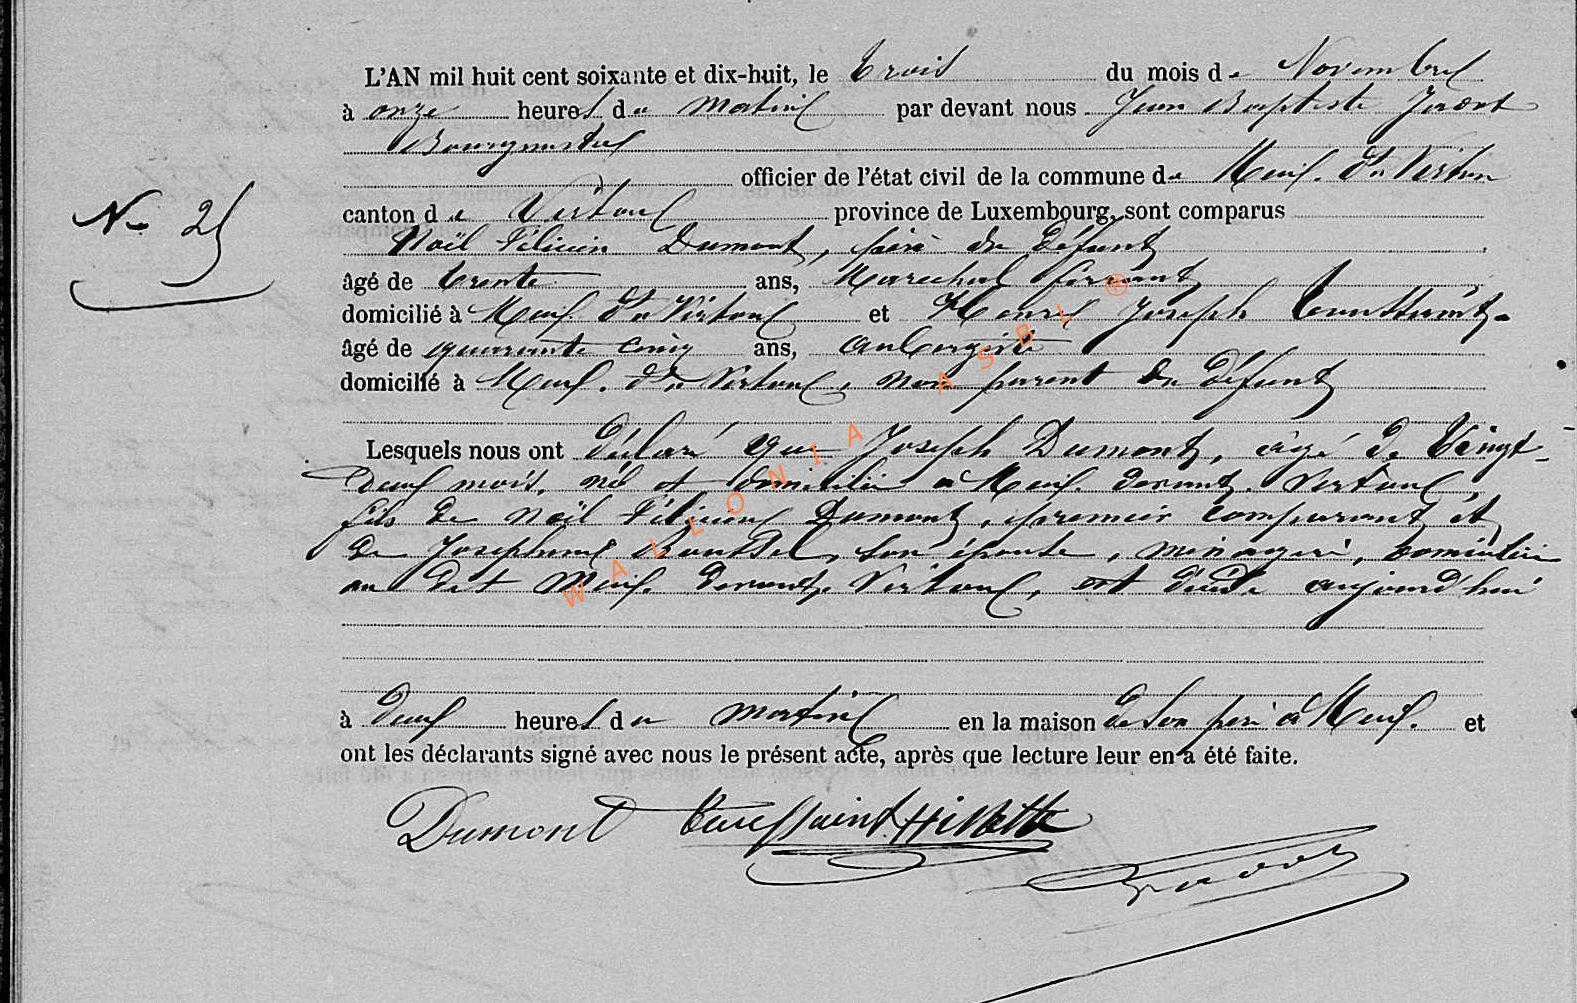 L'AN mil huit cent soixante et dix-huit, le trois du mois de Novembre
à onze heures du matin par devant nous Jean Baptiste
Bourgmestre
officier de l'état civil de la commune de Meix-dt-Virton
N° 25
canton de Virton province de Luxembourg, sont comparus
Noël Félicien Dumont, père du défunt
âgé de trente ans, Marechal ferrant
domicilié à Meix dt Virton et Henri Joseph Toussaint,
âgé de quarante cinq ans, aubergiste
domicilié à Meix-dt-Virton, non parent du défunt
Lesquels nous ont déclaré que Joseph Dumont, agé de Vingt-
deux mois, né et domicilié à Meix-devant-Virton,
fils de Noël Félicien Dumont, premier comparant, et
de Josephine, son épouse, ménagère, domiciliée
au dit Meix-devant-Virton, est décédé aujourd'hui
à deux heures du matin en la maison de son père à Meix. et
ont les déclarants signé avec nous le présent acte, après que lecture leur en a été faite.
Dumont Toussaint
WALLONIA ASBL ®